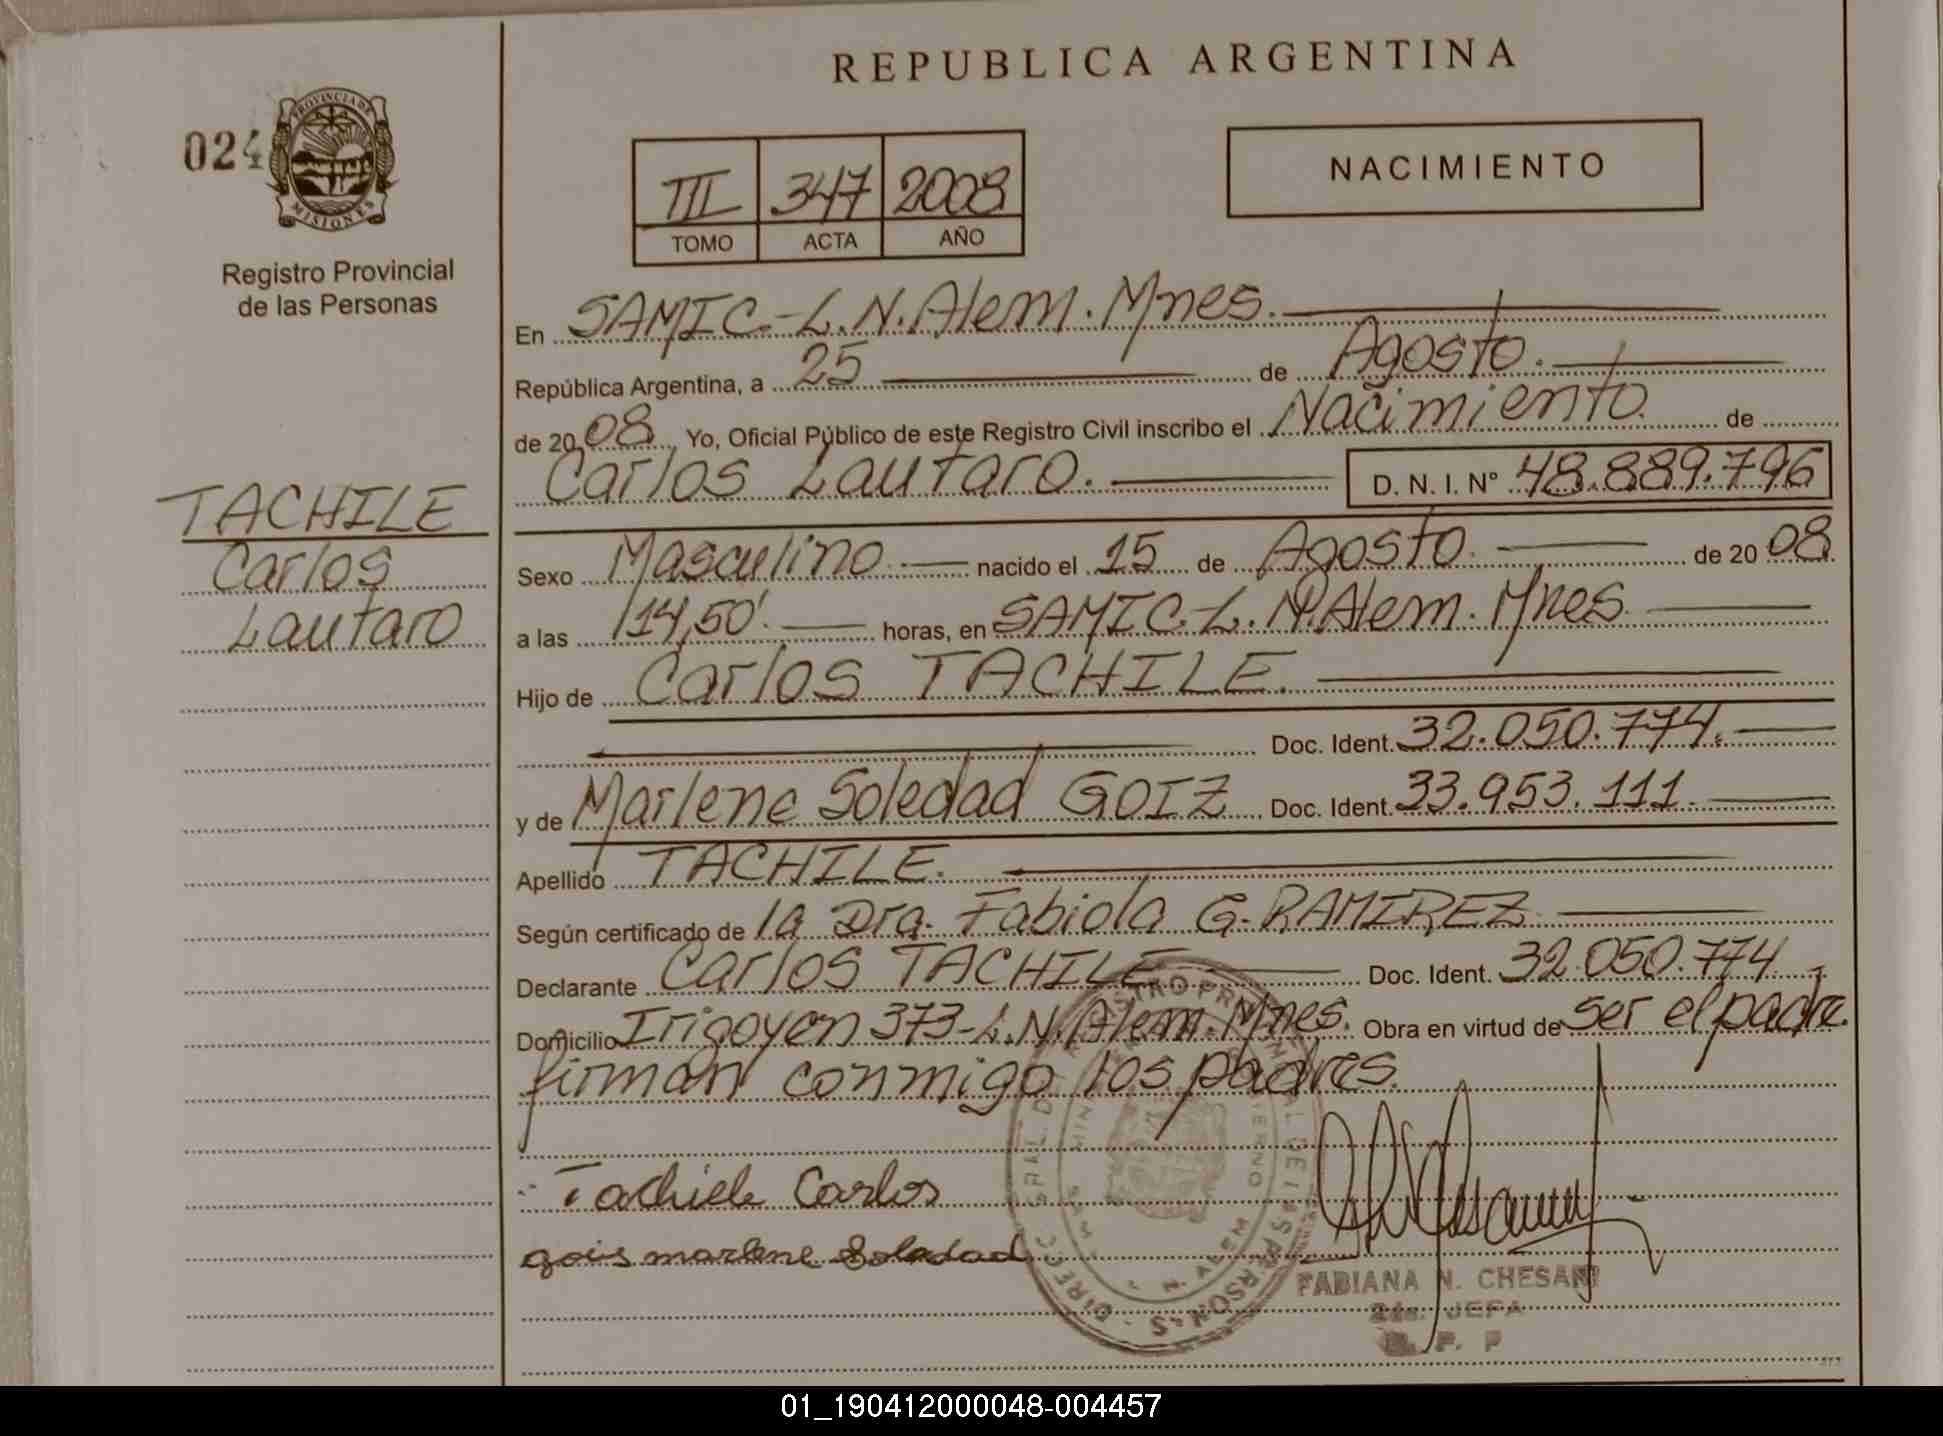 REPUBLICA ARGENTINA
024
PROVINCIA DE
MISIONES
Registro Provincial
de las Personas
III 347 2008
TOMO ACTA AÑO
NACIMIENTO
En SAMIC.-L.N.Alem.Mnes.
República Argentina, a 25 de Agosto.
de 2008 Yo, Oficial Público de este Registro Civil inscribo el Nacimiento de
Carlos Lautaro. D. N. I. N° 48.889.796
TACHILE
Carlos
Lautaro
Sexo Masculino nacido el 15 de Agosto. de 2008
a las 14,50'. horas, en SAMIC.-L.N.Alem.Mnes
Hijo de Carlos TACHILE.
Doc. Ident. 32.050.774.
y de Marlene Soledad GOIZ Doc. Ident. 33.953.111.
Apellido TACHILE.
Según certificado de la Dra. Fabiola G. RAMIREZ
Declarante Carlos TACHILE Doc. Ident. 32.050.774
Domicilio Irigoyen 373-L.N.Alem.Mnes. Obra en virtud de ser el padre.
firman conmigo los padres.
Tachile Carlos
gois marlene Soledad
FABIANA N. CHESANI
2da. JEFA
R. P. P
01_190412000048-004457